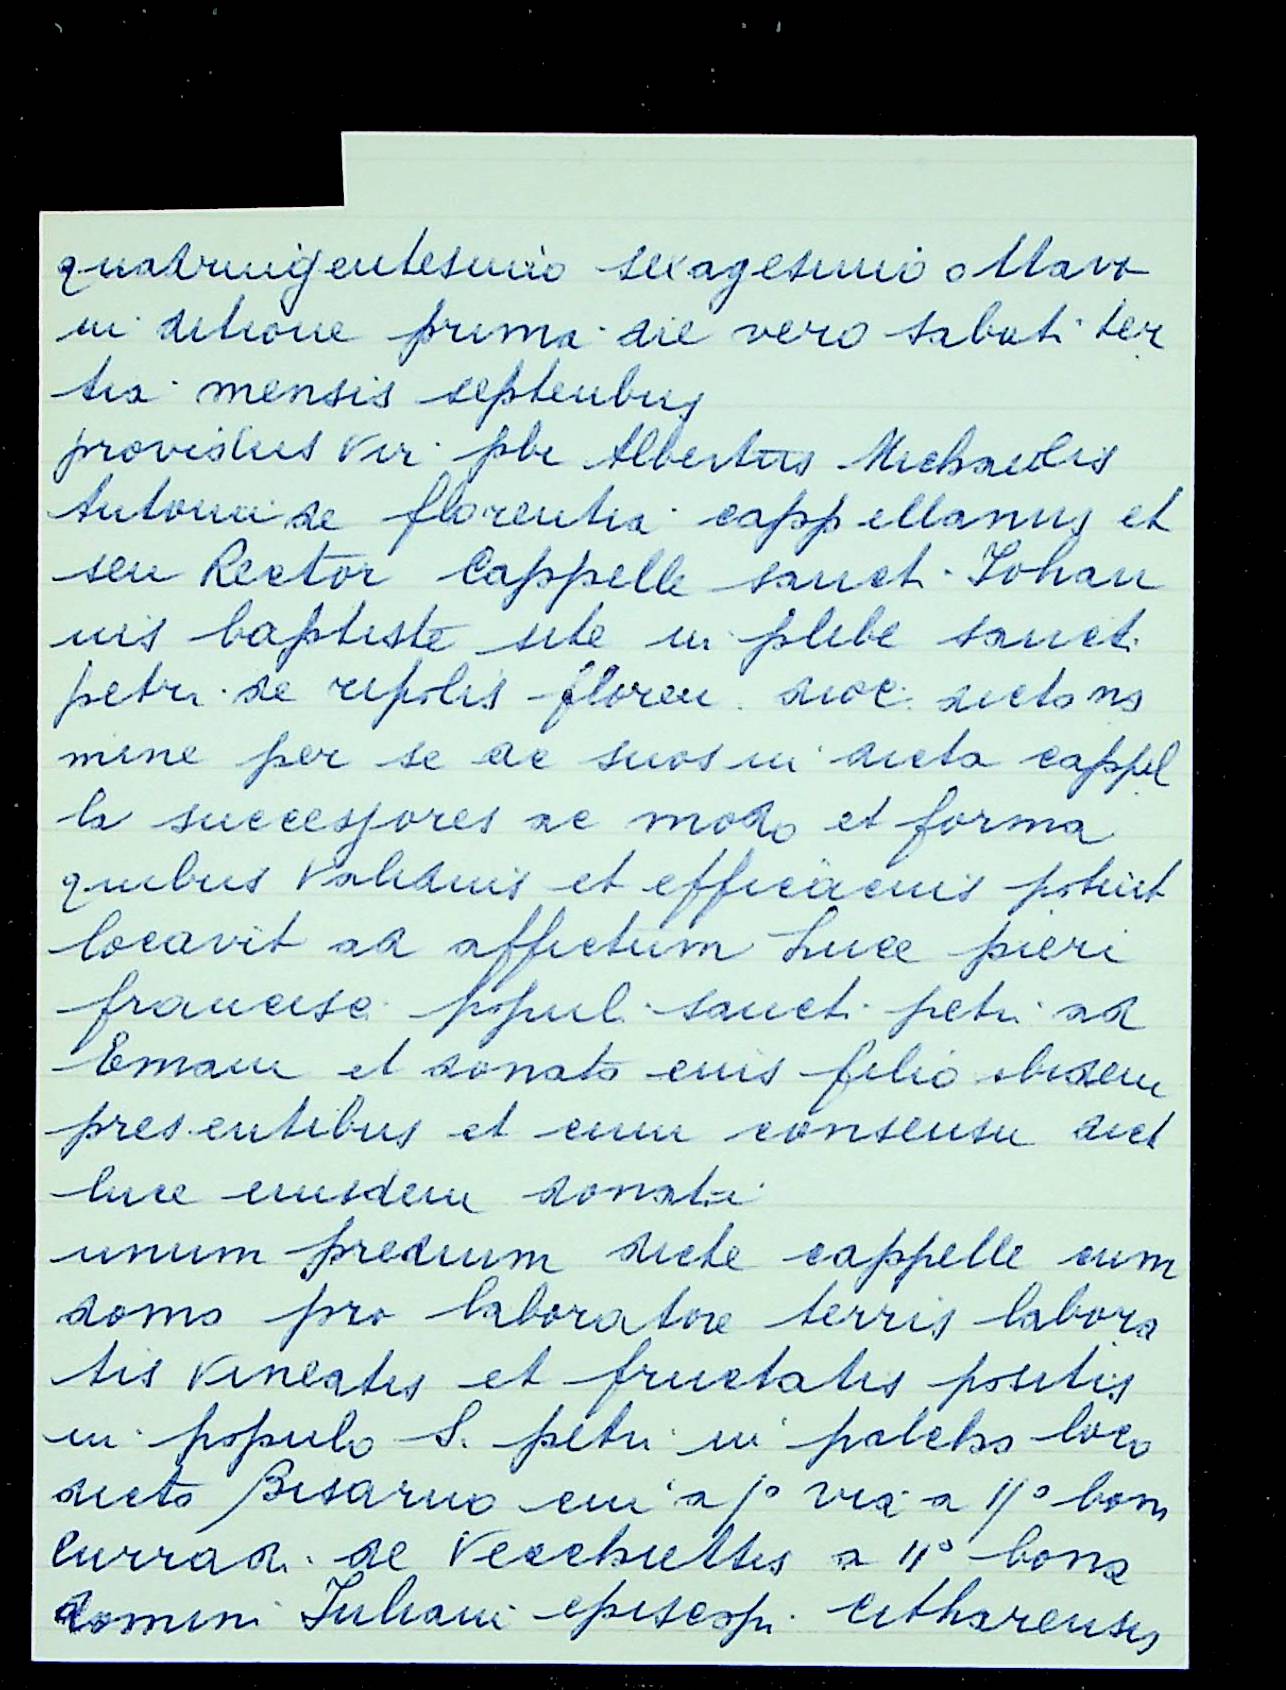 quatringentesimo sexagesimo ottavo
in ditione prima die vero sabati ter
tia mensis septenbris
providus vir pbr Albertus Michaelis
Antonii de florentia cappellanus et
seu Rector Cappelle sancti Johan
nis baptiste site in plebe sancti
petri de ripolis floren. dioc. dicto no
mine per se ac suos in dicta cappel
la successores ac modo et forma
quibus validius et efficacius potuit
locavit ad affictum Luce pieri
francisci populi sancti petri ad
Emam et donato eius filio ibidem
presentibus et cum consensu dicti
luce eiusdem donati
unum predium dicte cappelle cum
domo pro laboratore terris labora
tis vineatis et fructatis positis
in populo S. petri in palcho loco
dicto Bisarno cui a 1° via a 11° bona
Curradi de Vecchiettis a 11° bona
domini Juliani episcopi Citharensis